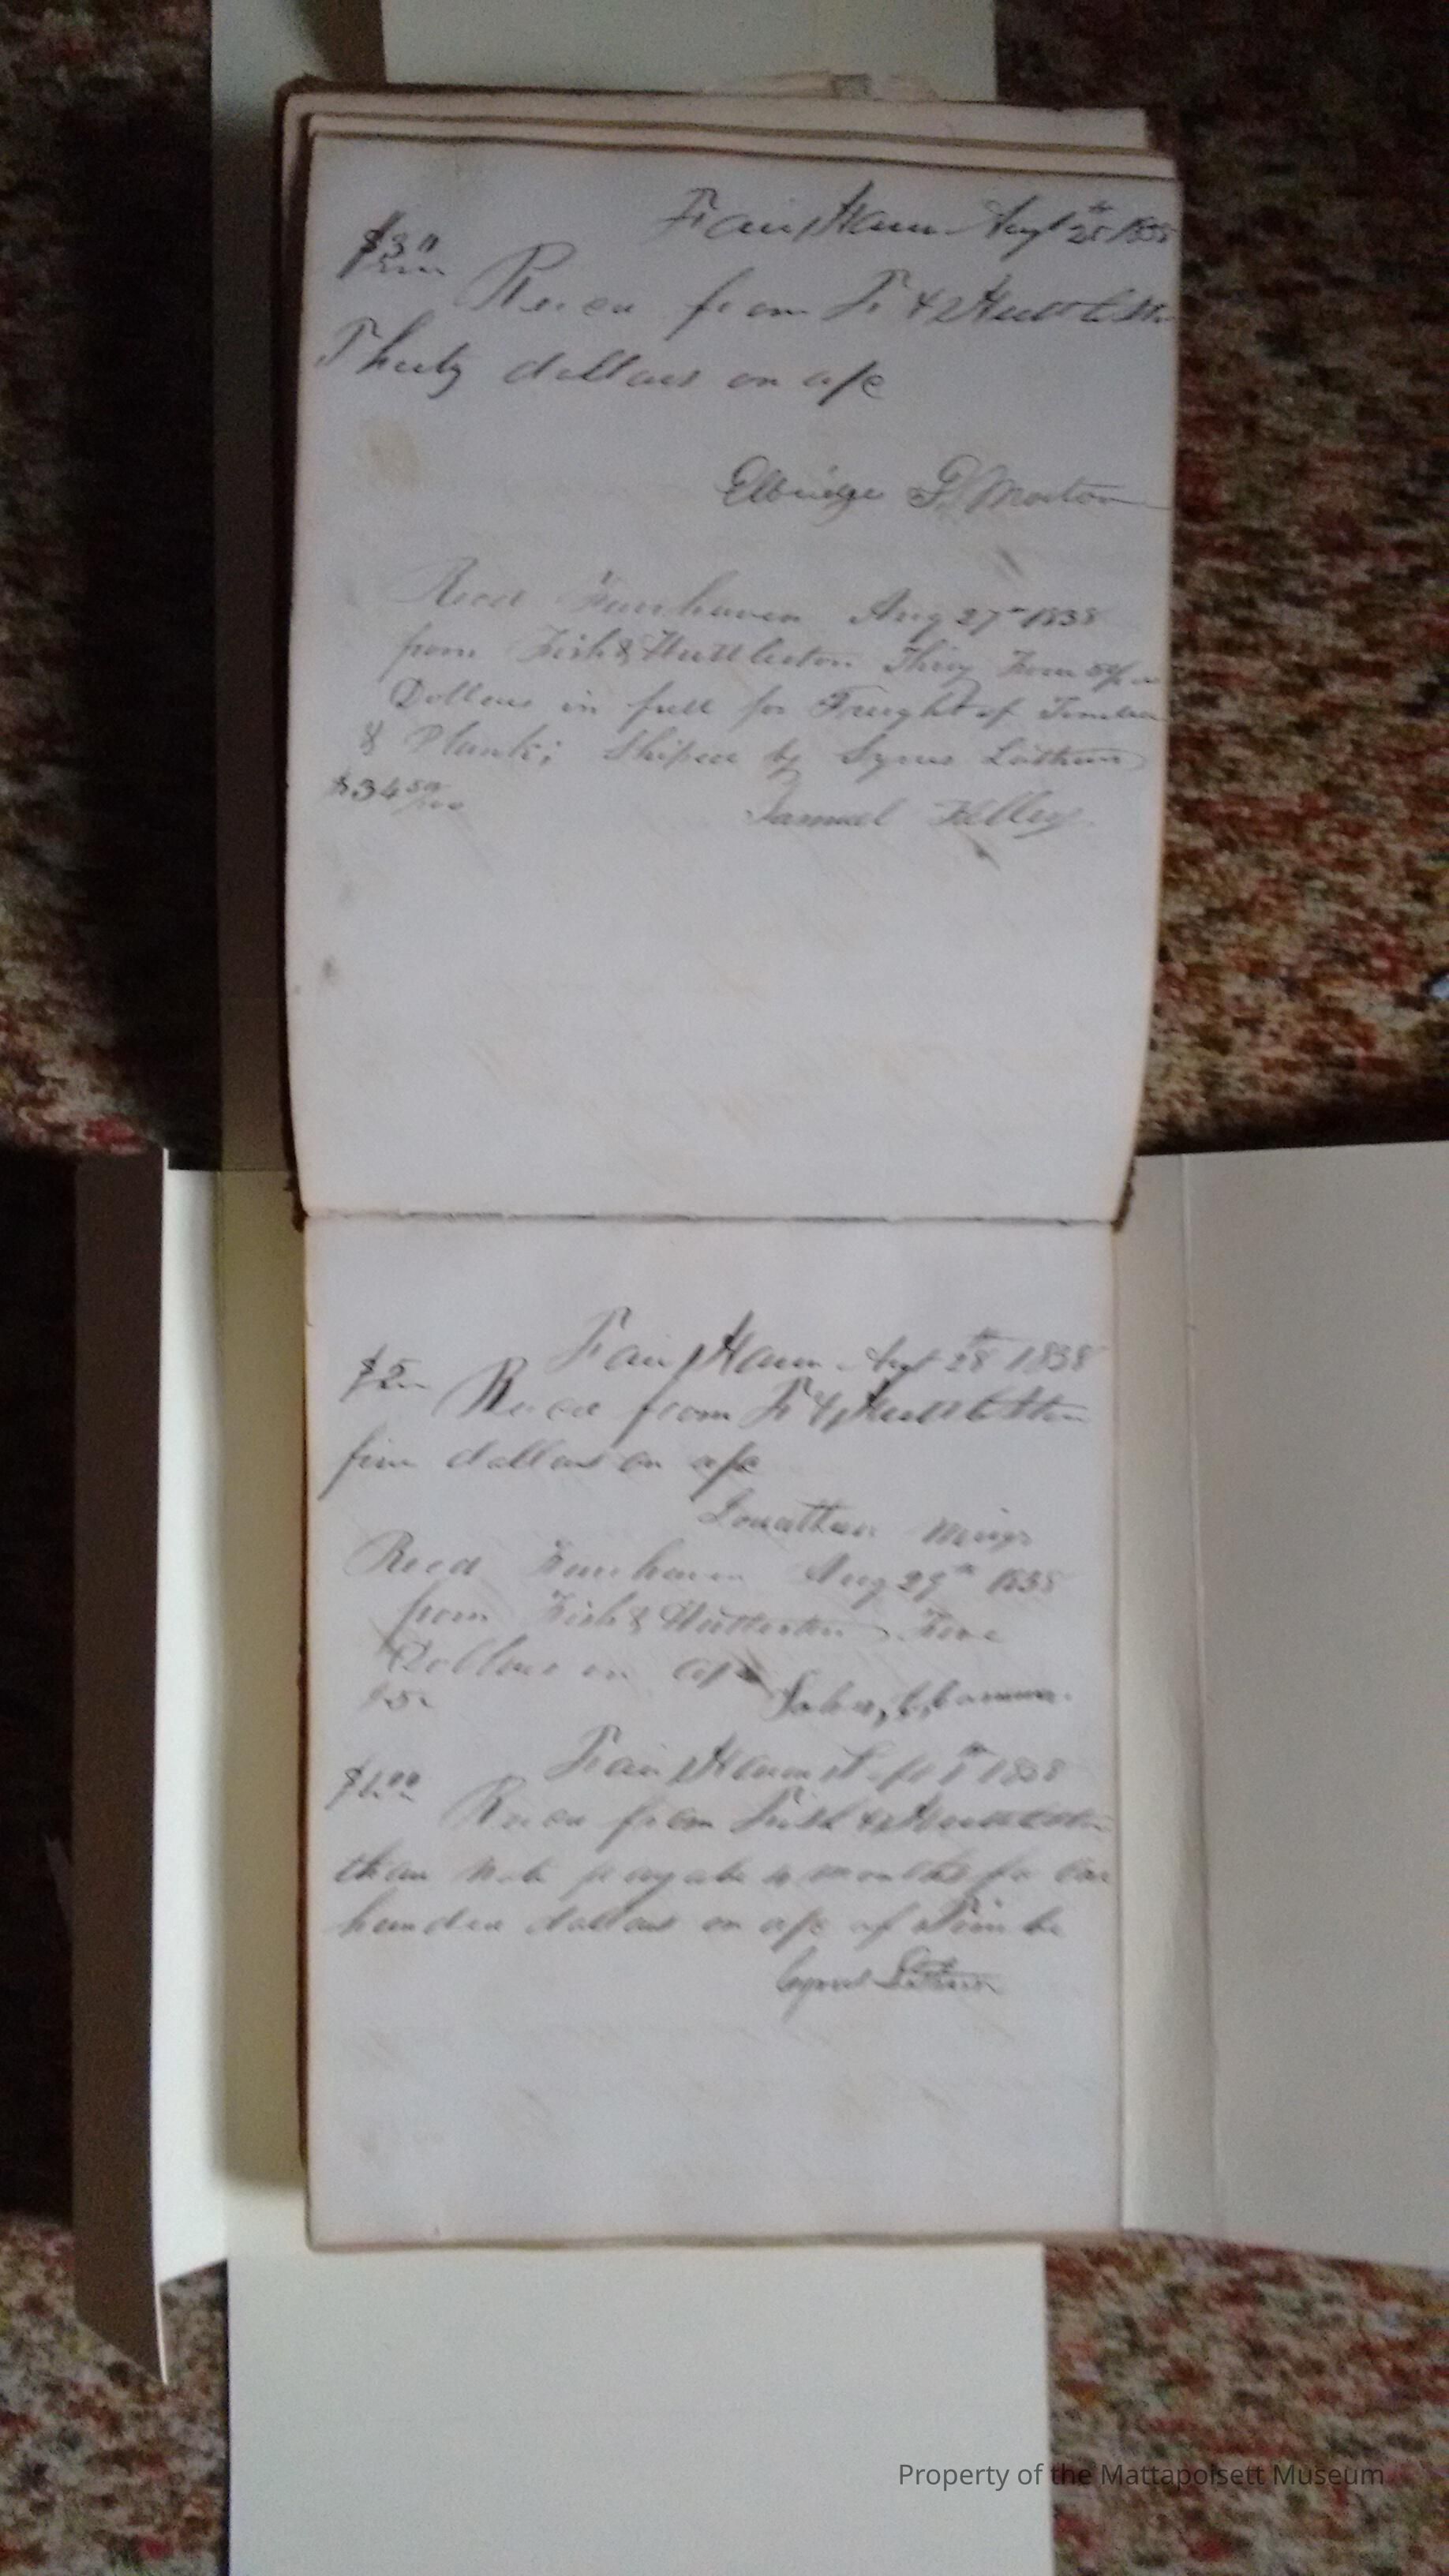 Fair Haven Augt 25th 1838
$30
Recea from F & Huttleston
Thirty dollars on a/c
Elbridge G. Morton
Recd Fairhaven Aug 27th 1838
from Fish & Huttleston Thirty Four 50/
Dollars in full for Freight of Timber
& Plank; Shiped by Syrus Lothrum
$34 50/100
Samuel Kelley
Fair Haven Augt 28th 1838
$5
Recea from F & Huttleston
five dollars on a/c
Jonathan Meigs
Recd Fairhaven Aug 29th 1838
from Fish & Huttleston Five
Dollars on a/c
$5
John
Fair Haven 1838
$100
Recea from Fish & Huttleston
thair note payabe 4 months for one
hundred dollars on a/c of Timbe
Cyrus
Property of the Mattapoisett Museum